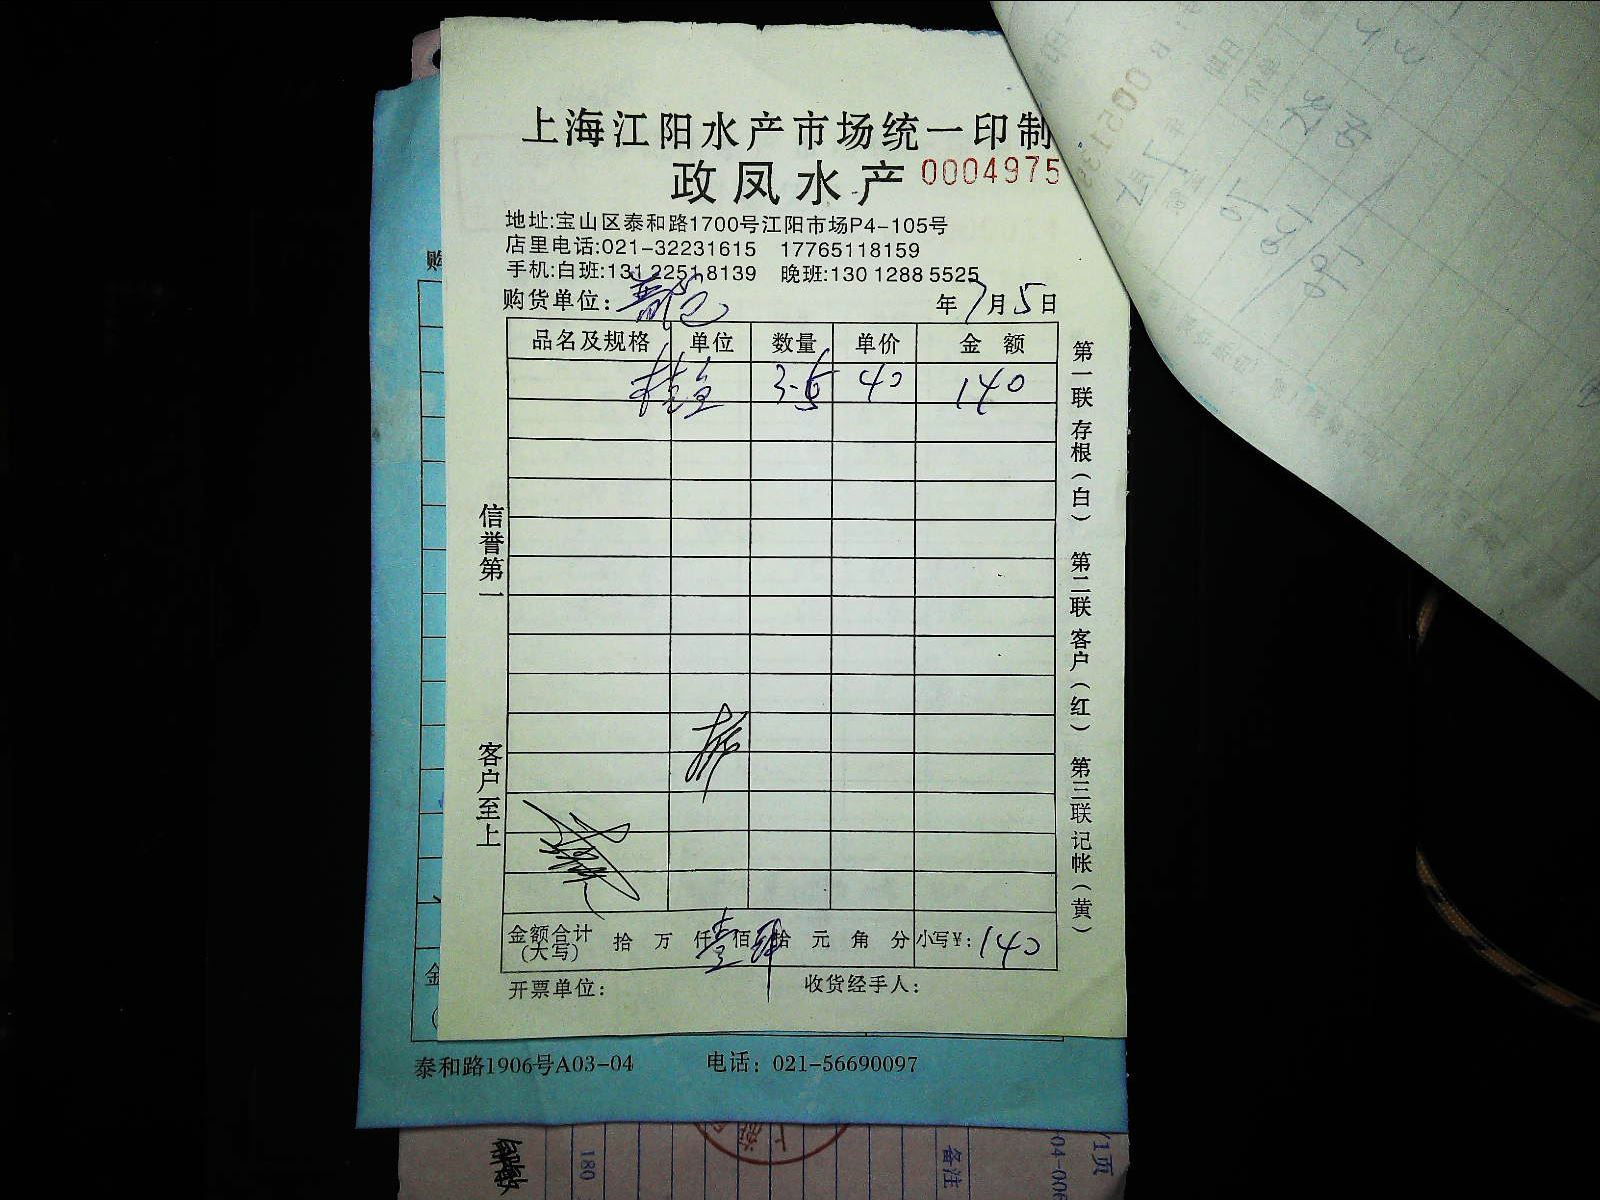 上海江阳水产市场统一印制
政凤水产 0004975
地址:宝山区泰和路1700号江阳市场P4-105号
店里电话:021-32231615 17765118159
手机:白班:131 2251 8139 晚班:130 1288 5525
购货单位:
年 7 月 5 日
品名及规格 单位 数量 单价 金 额
桂鱼 3.5 40 140
信誉第一
客户至上
第一联 存根(白) 第二联 客户(红) 第三联 记帐(黄)
金额合计(大写) 拾 万 仟 壹 佰 肆 拾 元 角 分 小写¥: 140
开票单位: 收货经手人:
购
金
泰和路1906号A03-04 电话: 021-56690097
180
备注
/1页